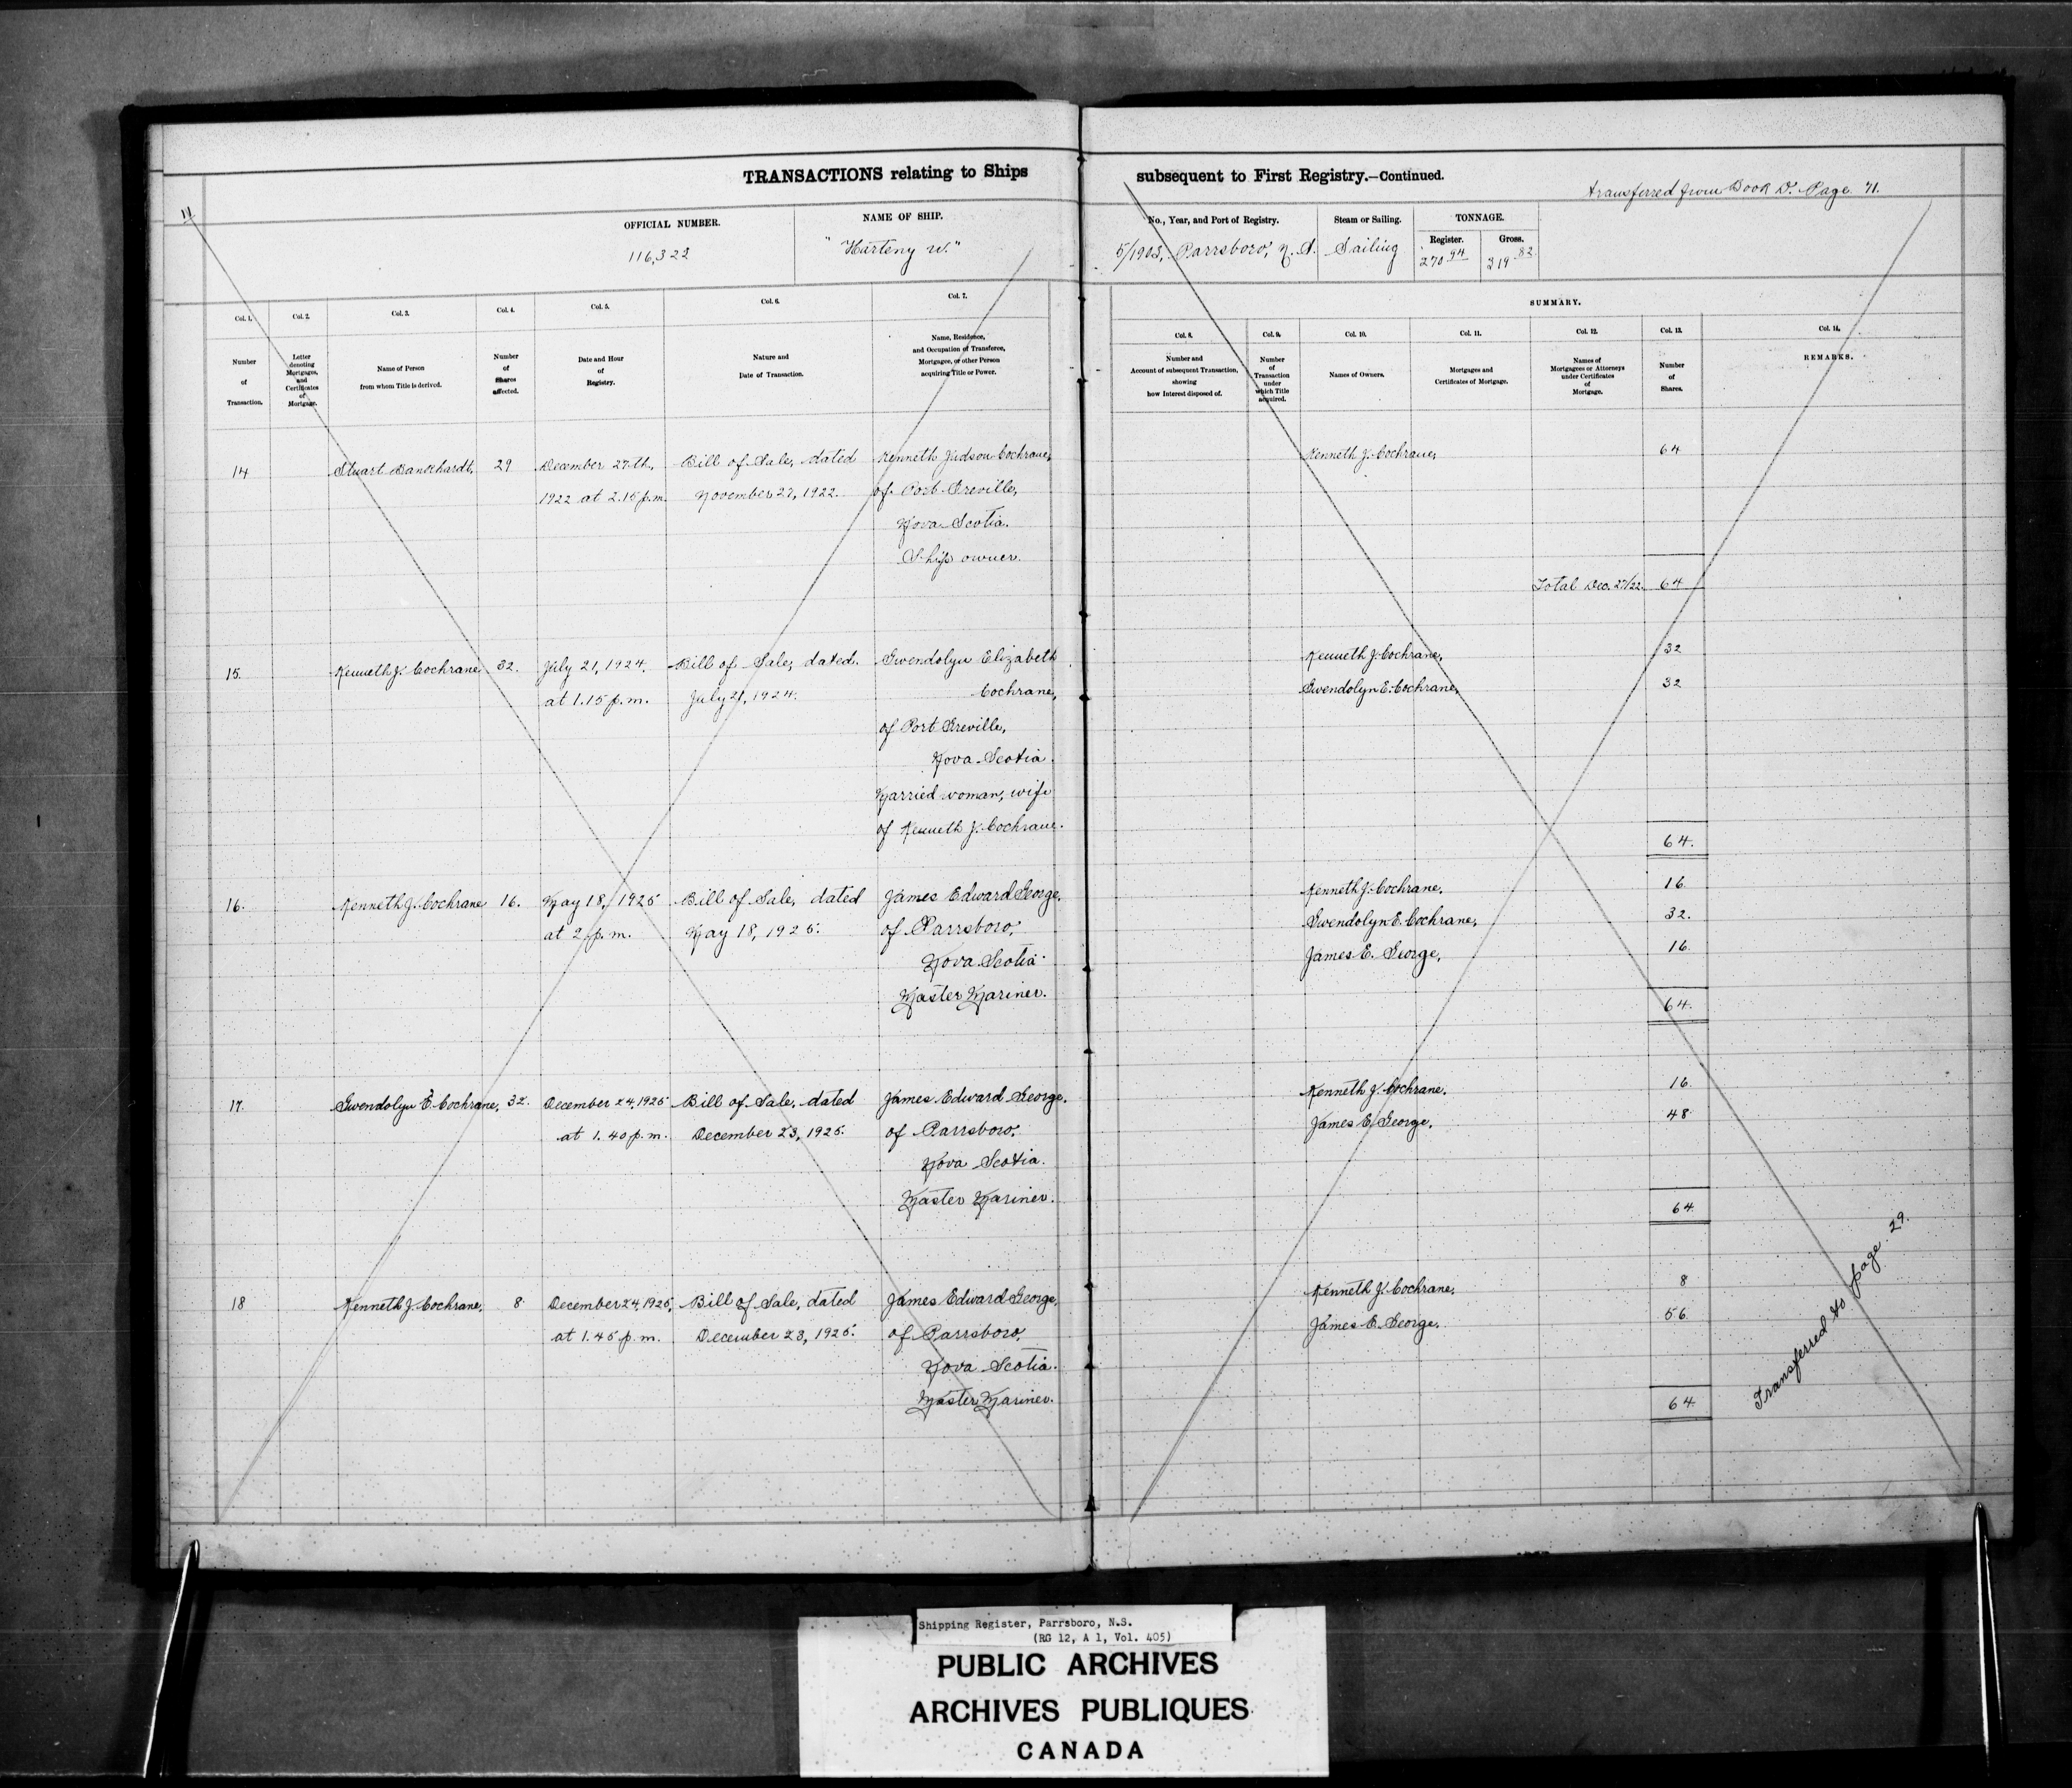 TRANSACTIONS relating to Ships subsequent to First Registry.—Continued.
transferred from Book D. Page 71.
11
OFFICIAL NUMBER.
116,322
NAME OF SHIP.
"Harteny W."
No., Year, and Port of Registry.
5/1903, Parrsboro, N.S.
Steam or Sailing.
Sailing
TONNAGE.
Register.
270 94
Gross.
319 82
SUMMARY.
Col. 1.
Number
of
Transaction.
Col. 2.
Letter
denoting
Mortgages,
and
Certificates
of
Mortgage.
Col. 3.
Name of Person
from whom Title is derived.
Col. 4.
Number
of
Shares
affected.
Col. 5.
Date and Hour
of
Registry.
Col. 6.
Nature and
Date of Transaction.
Col. 7.
Name, Residence,
and Occupation of Transferee,
Mortgagee, or other Person
acquiring Title or Power.
Col. 8.
Number and
Account of subsequent Transaction,
showing
how Interest disposed of.
Col. 9.
Number
of
Transaction
under
which Title
acquired.
Col. 10.
Names of Owners.
Col. 11.
Mortgages and
Certificates of Mortgage.
Col. 12.
Names of
Mortgagees or Attorneys
under Certificates
of
Mortgage.
Col. 13.
Number
of
Shares.
Col. 14.
REMARKS.
14 Stuart Dankhardt, 29 December 27th, Bill of Sale, dated Kenneth Judson Cochrane, Kenneth J. Cochrane, 64
1922 at 2.15 p.m. November 27, 1922. of Port Greville,
Nova Scotia.
Ship owner.
Total Dec. 27/22. 64
15. Kenneth J. Cochrane 32. July 21, 1924. Bill of Sale, dated. Gwendolyn Elizabeth Kenneth J. Cochrane, 32
at 1.15 p.m. July 21, 1924. Cochrane, Gwendolyn E. Cochrane, 32
of Port Greville,
Nova Scotia.
Married woman, wife
of Kenneth J. Cochrane. 64.
16. Kenneth J. Cochrane 16. May 18, 1925 Bill of Sale, dated James Edward George, Kenneth J. Cochrane. 16
at 2 p.m. May 18, 1925. of Parrsboro, Gwendolyn E. Cochrane, 32.
Nova Scotia. James E. George, 16
Master Mariner. 64.
17. Gwendolyn E. Cochrane, 32. December 24, 1925 Bill of Sale, dated James Edward George, Kenneth J. Cochrane. 16
at 1.40 p.m. December 23, 1925. of Parrsboro, James E. George. 48
Nova Scotia.
Master Mariner. 64
18 Kenneth J. Cochrane. 8 December 24, 1925, Bill of Sale, dated James Edward George, Kenneth J. Cochrane. 8
at 1.45 p.m. December 23, 1925. of Parrsboro, James E. George. 56
Nova Scotia.
Master Mariner. 64
Transferred to page 29.
Shipping Register, Parrsboro, N.S.
(RG 12, A 1, Vol. 405)
PUBLIC ARCHIVES
ARCHIVES PUBLIQUES
CANADA